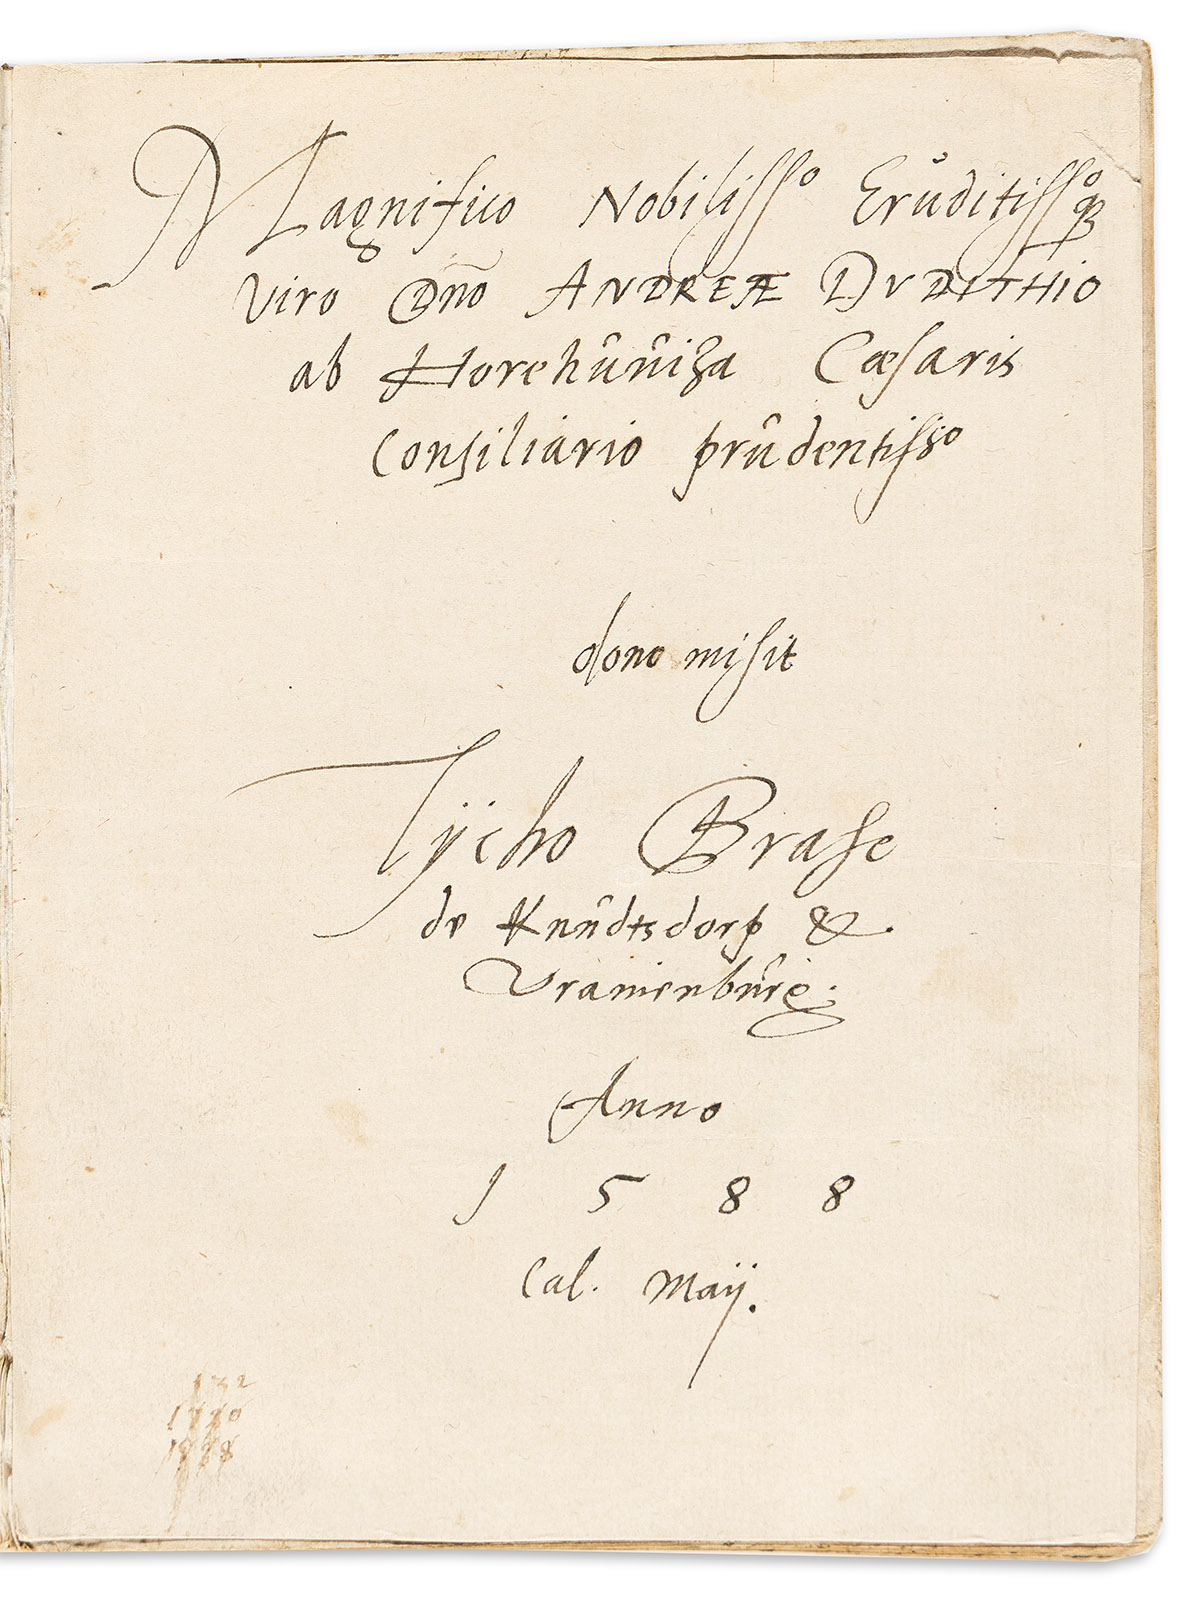 Magnifico Nobilisso Eruditissoqꝫ
Viro Dn̄o ANDREÆ DVDITHIO
ab Horehuuiza Cæsaris
Consiliario prudentisso
dono misit
Tÿcho Brahe
de Knudtsdorp &
Vranienburg.
Anno
1588
Cal. Maij.